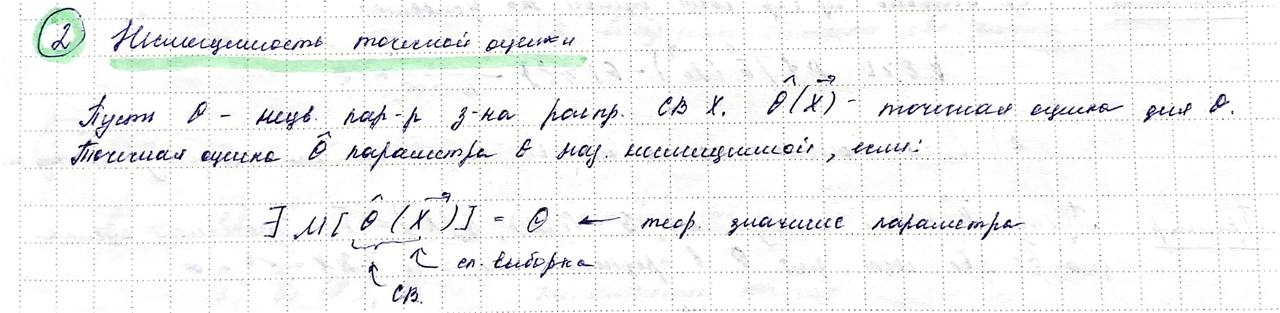 2 Несмещенность точечной оценки
Пусть θ - неизв. пар-р з-на распр. СВ X. θ̂(X⃗) - точечная оценка для θ.
Точечная оценка θ̂ параметра θ наз. несмещенной, если:
∃ M[θ̂(X⃗)] = θ ← теор. значение параметра
сл. выборка
СВ.